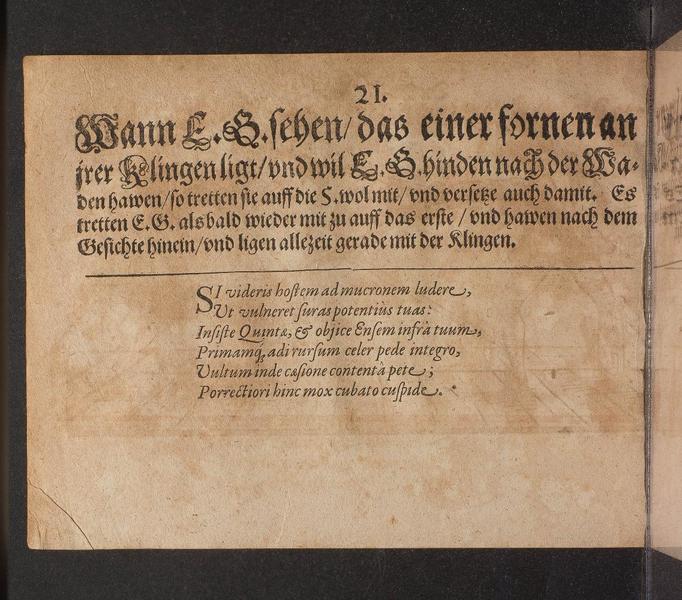 21.
Wann E. G. sehen/ das einer fornen an
jrer Klingen ligt/ vnd wil E. G. hinden nach der Wa-
den hawen/ so tretten sie auff die S. wol mit/ vnd versetze auch damit. Es
tretten E. G. alsbald wieder mit zu auff das erste / vnd hawen nach dem
Gesichte hinein/ vnd ligen allezeit gerade mit der Klingen.
SI videris hostem ad mucronem ludere,
Ut vulneret suras potentiùs tuas:
Insiste Quintæ, & objice Ensem infrà tuum,
Primamq́; adi rursum celer pede integro,
Vultum inde cæsione contentâ pete;
Porrectiori hinc mox cubato cuspide.